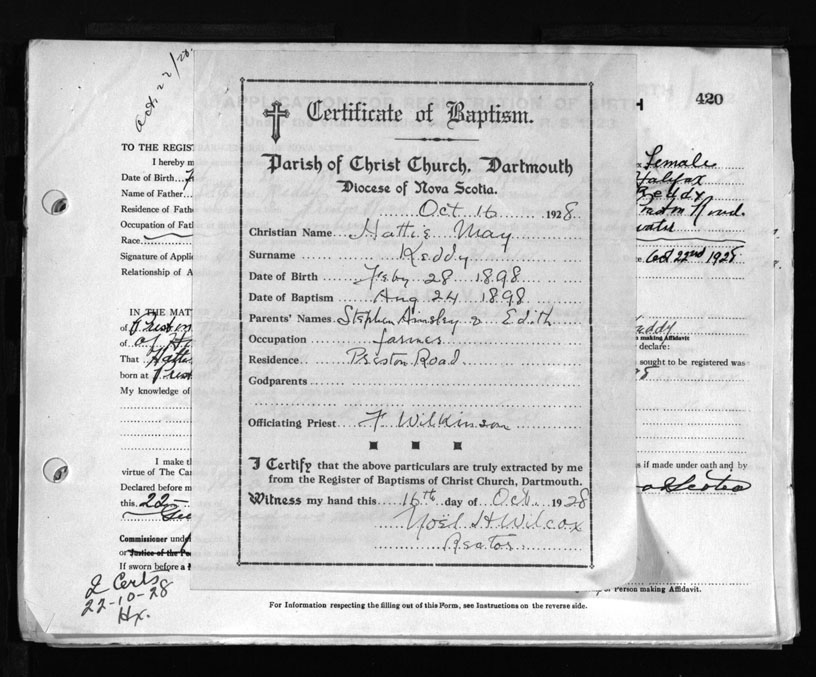 Oct 22/28
420
TO THE REGIST
I hereby m
Date of Birth
Name of Father
Residence of Fath
Occupation of Fat
Race
Signature of Applic
Relationship of A
IN THE MAT
of Preston
of
That Hatti
born at Prest
My knowledge of
I make t
virtue of The Can
Declared before m
this 22
Commissioner unde
or Justice of the Pe
If sworn before a
2 Certs
22-10-28
Hx.
Certificate of Baptism.
Parish of Christ Church, Dartmouth
Diocese of Nova Scotia.
Oct 16 1928
Christian Name Hattie May
Surname Keddy
Date of Birth Feby 28 1898
Date of Baptism Aug 24 1898
Parents' Names Stephen Ainsley & Edith
Occupation farmer
Residence Preston Road
Godparents
Officiating Priest F Wilkinson
I Certify that the above particulars are truly extracted by me
from the Register of Baptisms of Christ Church, Dartmouth.
Witness my hand this 16th day of Oct. 1928
Noël H Wilcox
Rector
H
Female
Halifax
Keddy
Preston Road
Oct 22nd 1928
making Affidavit
declare:
sought to be registered was
s if made under oath and by
Scotia
of Person making Affidavit.
For Information respecting the filling out of this Form, see Instructions on the reverse side.